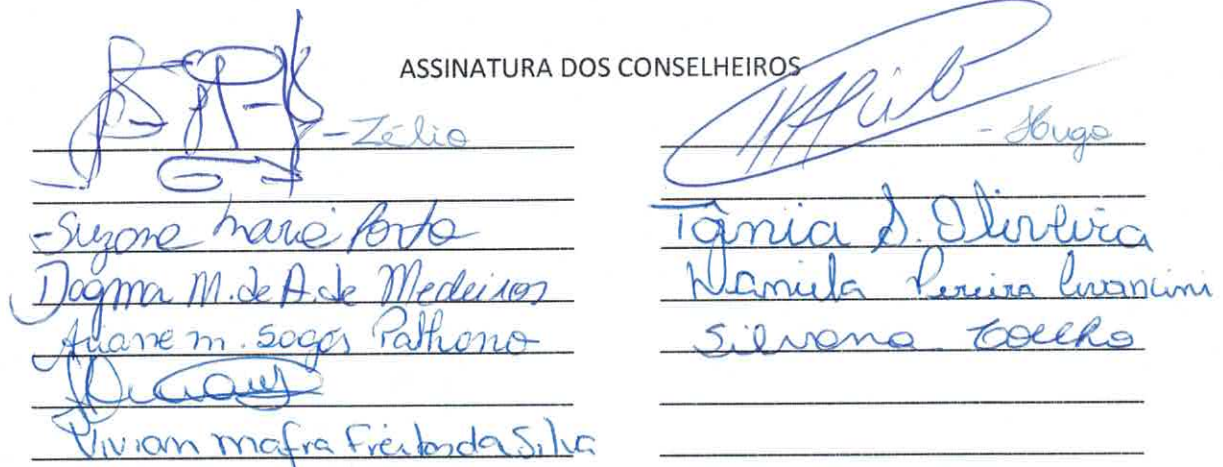 ASSINATURA DOS CONSELHEIROS
-Zélio
-Suzane Marie Porto
Dagma M. de A. de Medeiros
Ariane m. Sagás
Vivian mafra Freitas da Silva
- Hugo
Tânia S. Oliveira
Daniela Pereira
Silvana Coelho